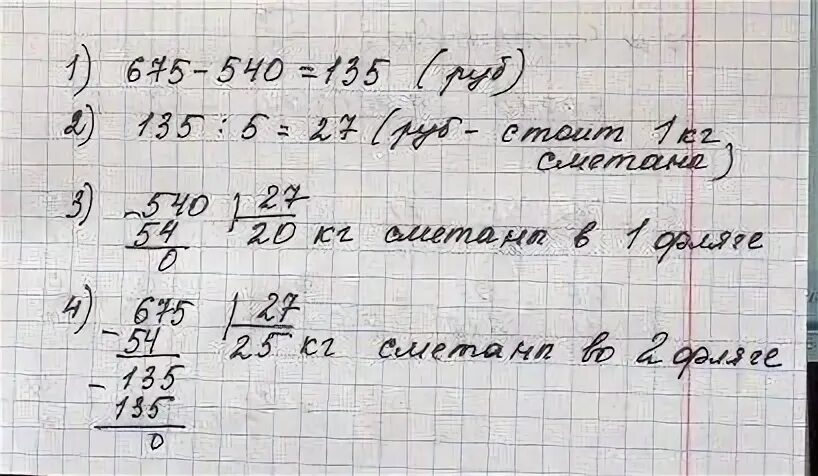 1) 675 - 540 = 135 (руб)
2) 135 : 5 = 27 (руб - стоит 1 кг
сметаны)
3) - 540 | 27
54 20 кг сметаны в 1 фляге
0
4) - 675 | 27
54 25 кг сметаны во 2 фляге
- 135
135
0